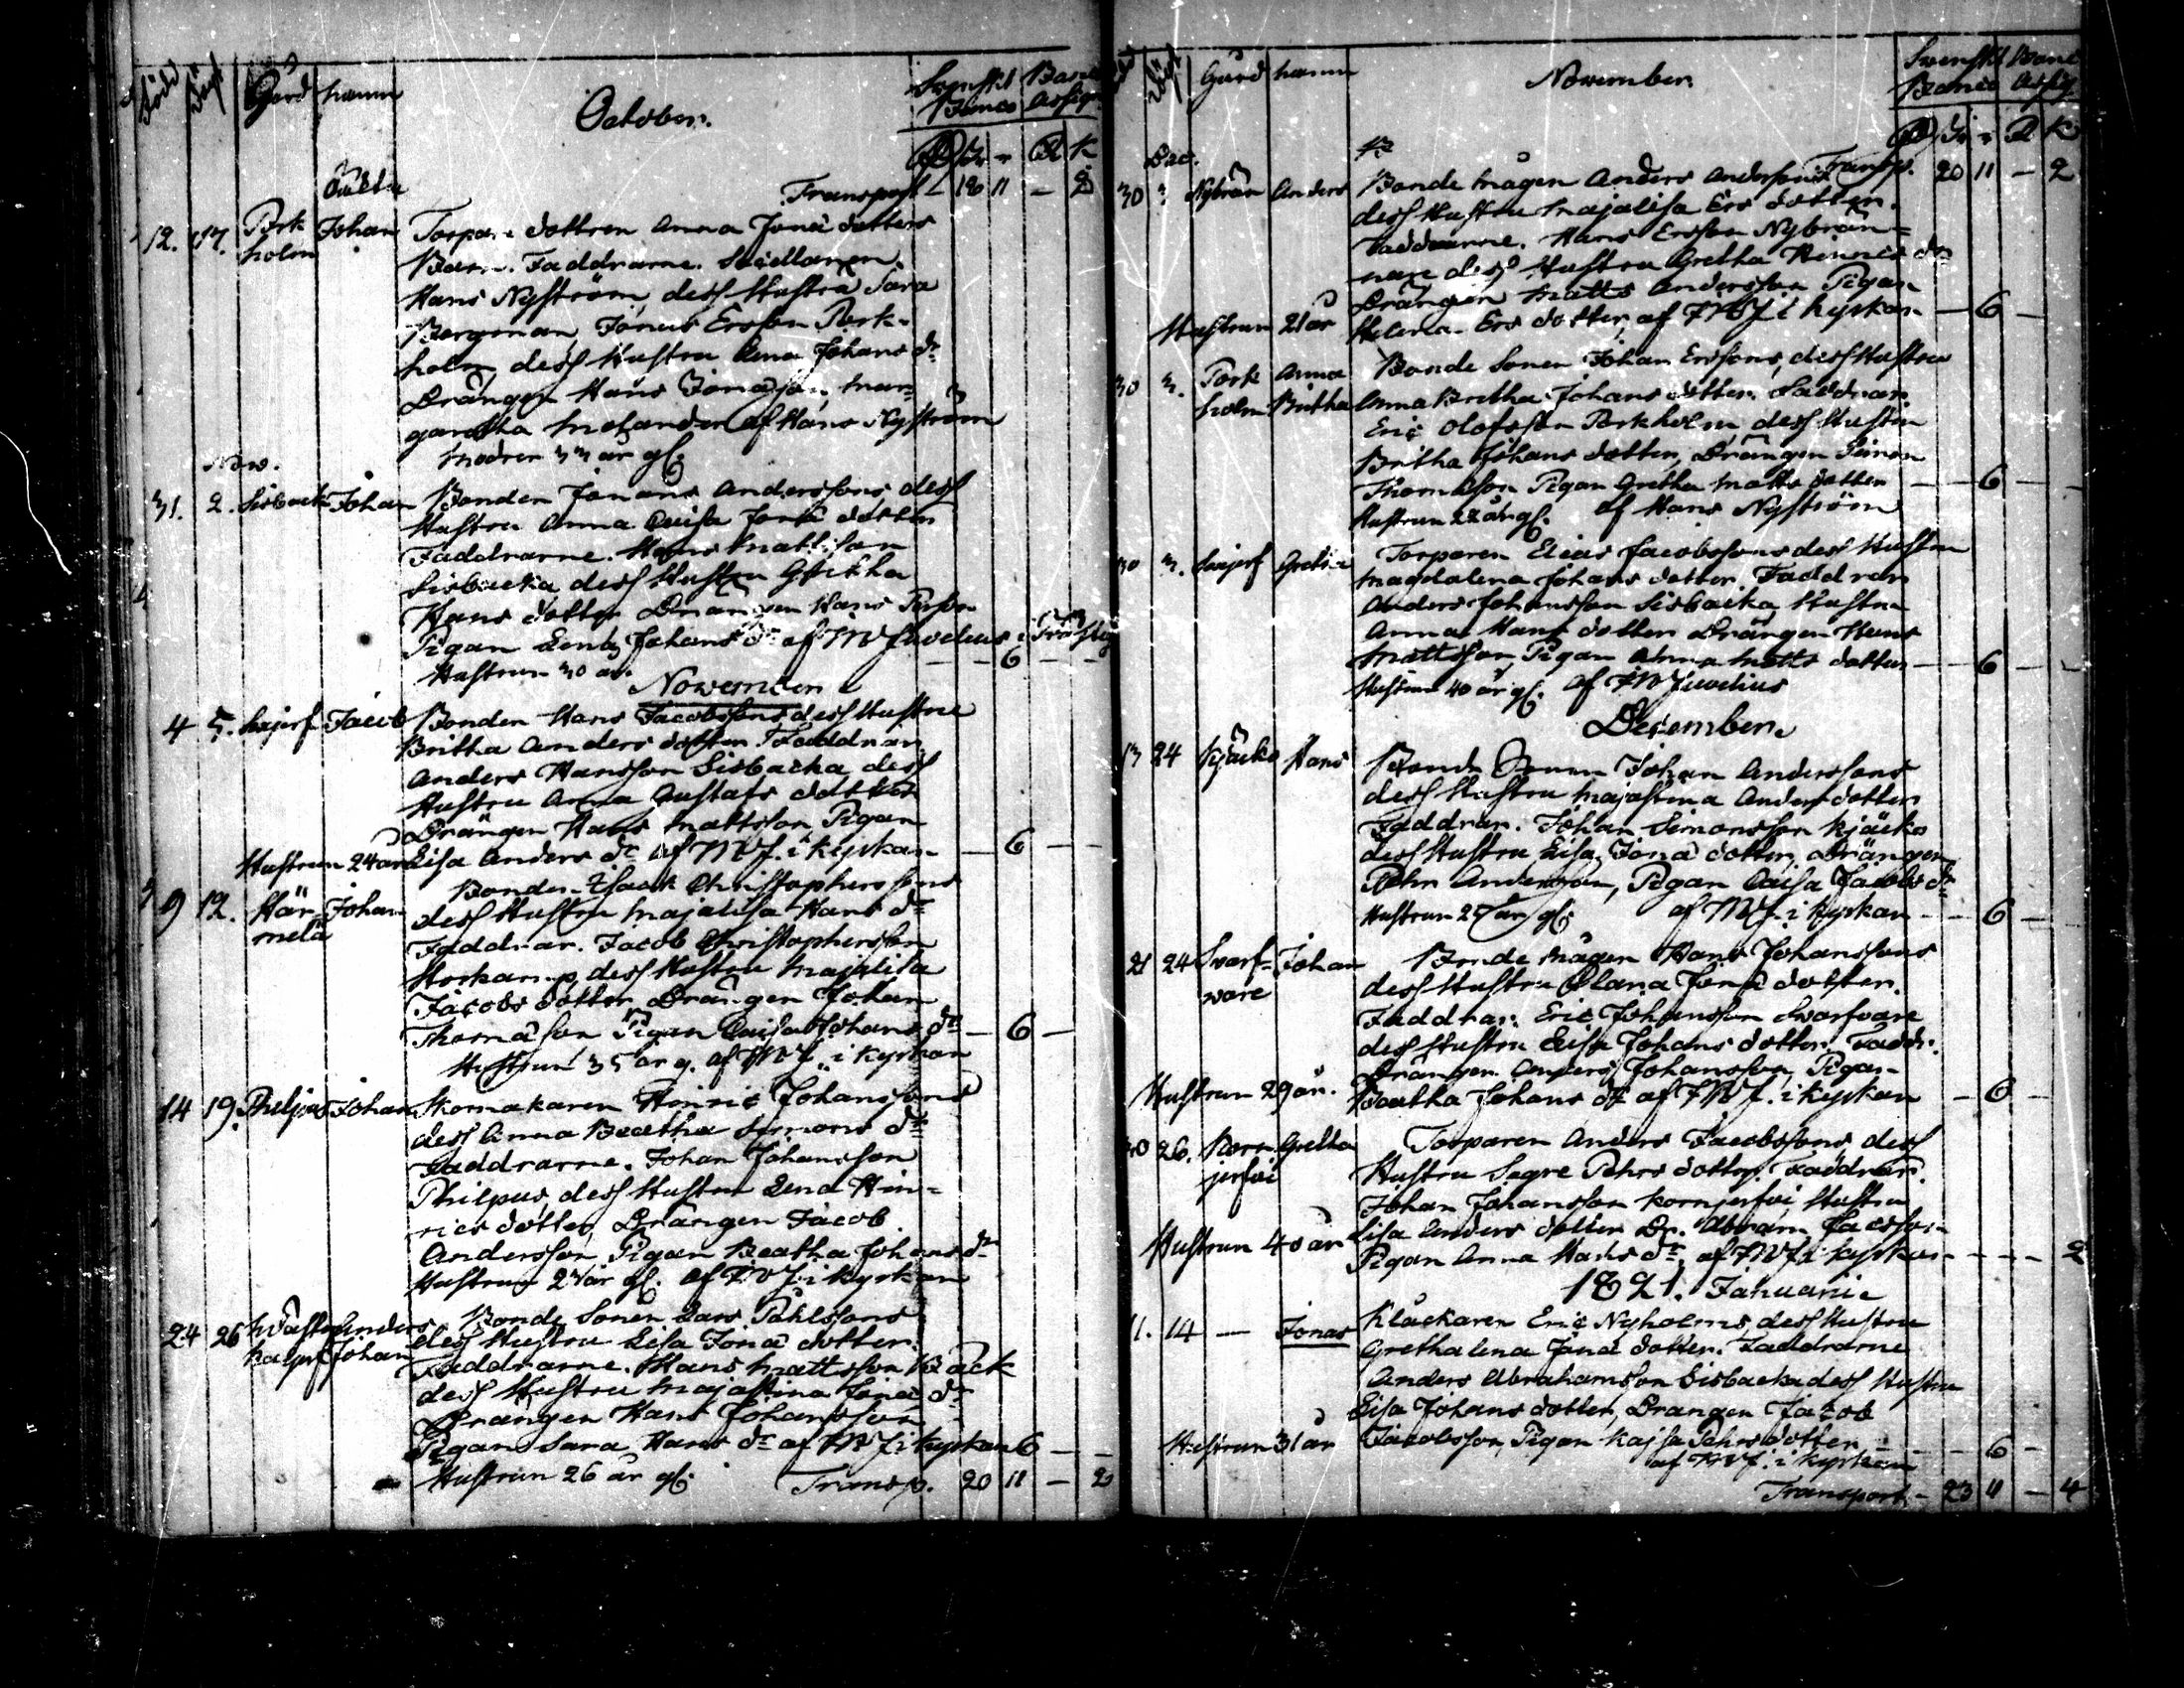 Född Döpt Gård namn October. Svenskt Banco Banco Assign.
Oäkta Transport - 16 11 - 2
12. 17. Pork Johan Torpare dottren Anna Jona dotters
holm Barn. Faddrarne. Sadlaren
Hans Nyström, dess Hustru Sara
Bergman, Jonas Ersson Pork-
holm dess Hustru Lena Johans dr
Drängen Hans Jonasson, Mar-
garetha Melander af Hans Nyström
Modren 33 år gl.
Nov.
31. 2. Sisbacka Johan Bonden Johans Anderssons dess
Hustru Anna Caisa Jona dotter
Faddrarne. Hans Mattsson
Sisbacka dess Hustru Gretha
Hans dotter Drängen Hans Persson
Pigan Lena Johans dr af JW Juvelius i
Hustrun 30 år. - - 6 - -
November
4 5. Kajerf Jacob Bonden Hans Jacobssons dess Hustru
Britha Anders dotter Faddrar.
Anders Hansson Sisbacka dess
Hustru Anna Gustafs dotter
Drängen Hans Mattsson Pigan
Hustrun 24 år Lisa Anders dr af JWJ. i kyrkan - 6 - -
9 12. Här- Johan Bonden Isaak Christopherssons
melä dess Hustru Majalisa Hans dr
Faddrar. Jacob Christophersson
Storkamp dess Hustru Majalisa
Jacobs dotter Drängen Johan
Thomasson Pigan Caisa Johans dr - 6 -
Hustrun 35 år g. af JWJ i kyrkan
14 19. Philpus Johan Skomakaren Hinric Johanssons
dess Anna Beatha Simons dr
Faddrarne. Johan Johansson
Philpus, dess Hustru Lena Hin-
rics dotter, Drängen Jacob
Andersson Pigan Beatha Johans dr
Hustrun 27 år gl. af JWJ i kyrkan
24 26 Anders Bonde Sonen Lars Påhlssons
Johan dess Hustru Lisa Jona dotter.
Faddrarne. Hans Mattsson Back
dess Hustru Majastina Jona dr
Drängen Hans Johansson
Pigan Sara Hans dr af JWJ i kyrkan 6 - -
Hustrun 26 år gl. Transp. 20 11 - 2
Född Döpt Gård namn November Svenskt Banco Banco Assig.
Dec. Transp. 20 11 - 2
30 3 Nybrän Anders Bonde Mågen Anders Anderssons
dess Hustru Majalisa Ers dotter.
Faddrarne. Hans Ersson Nybrän-
nare dess Hustru Gretha Hinrics dr
Drängen Matts Andersson Pigan
Hustrun 21 år Helena Ers dotter, af JWJ i kyrkan - 6 -
30 3. Pork Anna Bonde Sonen Johan Erssons, dess Hustru
holm Britha Anna Britha Johans dotter. Faddrar.
Eric Olofsson Porkholm dess Hustru
Britha Johans dotter, Drängen Simon
Thomasson Pigan Gretha Matts dotter - - 6 - -
Hustrun 22 år gl. af Hans Nyström
30 3. Kajerf Greta Torparen Elias Jacobssons dess Hustru
Magdalena Johans dotter. Faddrar
Anders Johansson Sisbacka Hustru
Anna Hans dotter Drängen Hans
Mattsson, Pigan Anna Matts dotter - - 6 - -
Hustrun 40 år gl. af JW Juvelius
December
13 24 Kjäcko Hans Bonde Sonen Johan Anderssons
dess Hustru Majastina Anders dotter
Faddrar. Johan Simonsson Kjäcko
dess Hustru Lisa Jona dotter, Drängen
Pehr Andersson, Pigan Caisa Jacobs dr
Hustrun 27 år gl. af JWJ. i kyrkan - - 6 -
21 24 Svarf- Johan Bonde Mågen Hans Johanssons
ware dess Hustru Ulana Jona dotter.
Faddrar. Eric Johansson Svarfvare
dess Hustru Lisa Johans dotter, Faddr.
Drängen Anders Johansson, Pigan
Hustrun 29 år. Beatha Johans dr af JWJ. i kyrkan - 6 -
20 26. Korn Gretha Torparen Anders Jacobssons dess
jerfvi Hustru Segre Pehrs dotter. Faddrar.
Johan Johansson Kornjerfvi Hustru
Hustrun 40 år Lisa Anders dotter Dr. Abram
Pigan Anna Hans dr af JWJ i kyrkan - - - - 2
1821. Januari
11. 14 - Jonas Klåckaren Eric Nyholms dess Hustru
Grethalena Jona dotter. Faddrarne
Anders Abrahamsson Sisbacka dess Hustru
Lisa Johans dotter, Drängen Jacob
Hustrun 31 år Jacobsson, Pigan Kajsa Pehrs dotter - - 6 -
af JWJ. i kyrkan
Transport - 23 11 - 4